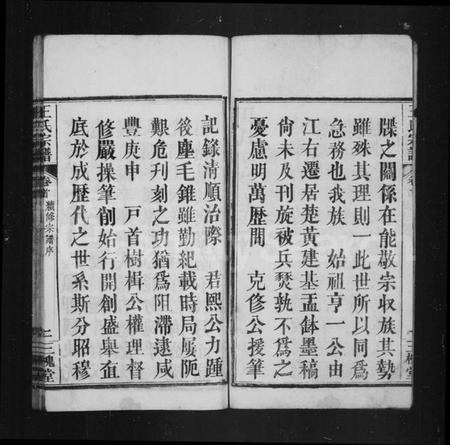 牒之關係在能敬宗收族其勢
雖殊其理則一此世所以同爲
急務也我族　始祖亨一公由
江右遷居楚黄建基盂鉢墨稿
尙未及刋旋被兵燹孰不爲之
憂慮明萬歷間　克修公援筆
記錄清順治際　君熙公力踵
後塵毛錐雖勤紀載時局屡阨
艱危刋刻之功猶爲阻滯逮咸
豐庚申　戸首樹楫公權理督
修嚴操筆創始行開創盛舉直
底於成歴代之世系斯分昭穆
王氏宗譜
卷首
續修宗譜序
三槐堂